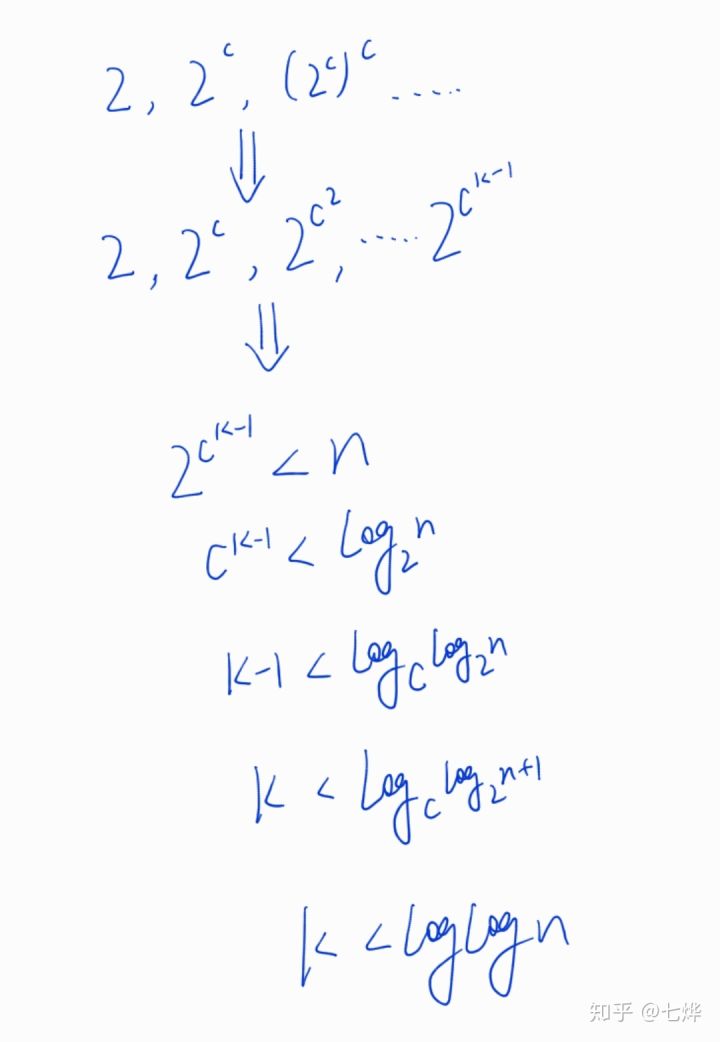 2, 2^c, (2^c)^c .....
⇓
2, 2^c, 2^{c^2}, ..... 2^{c^{k-1}}
⇓
2^{c^{k-1}} < n
c^{k-1} < log_2 n
k-1 < log_c log_2 n
k < log_c log_2 n+1
k < log log n
知乎 @七烨